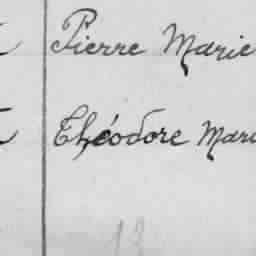 Pierre Marie
Théodore Mari